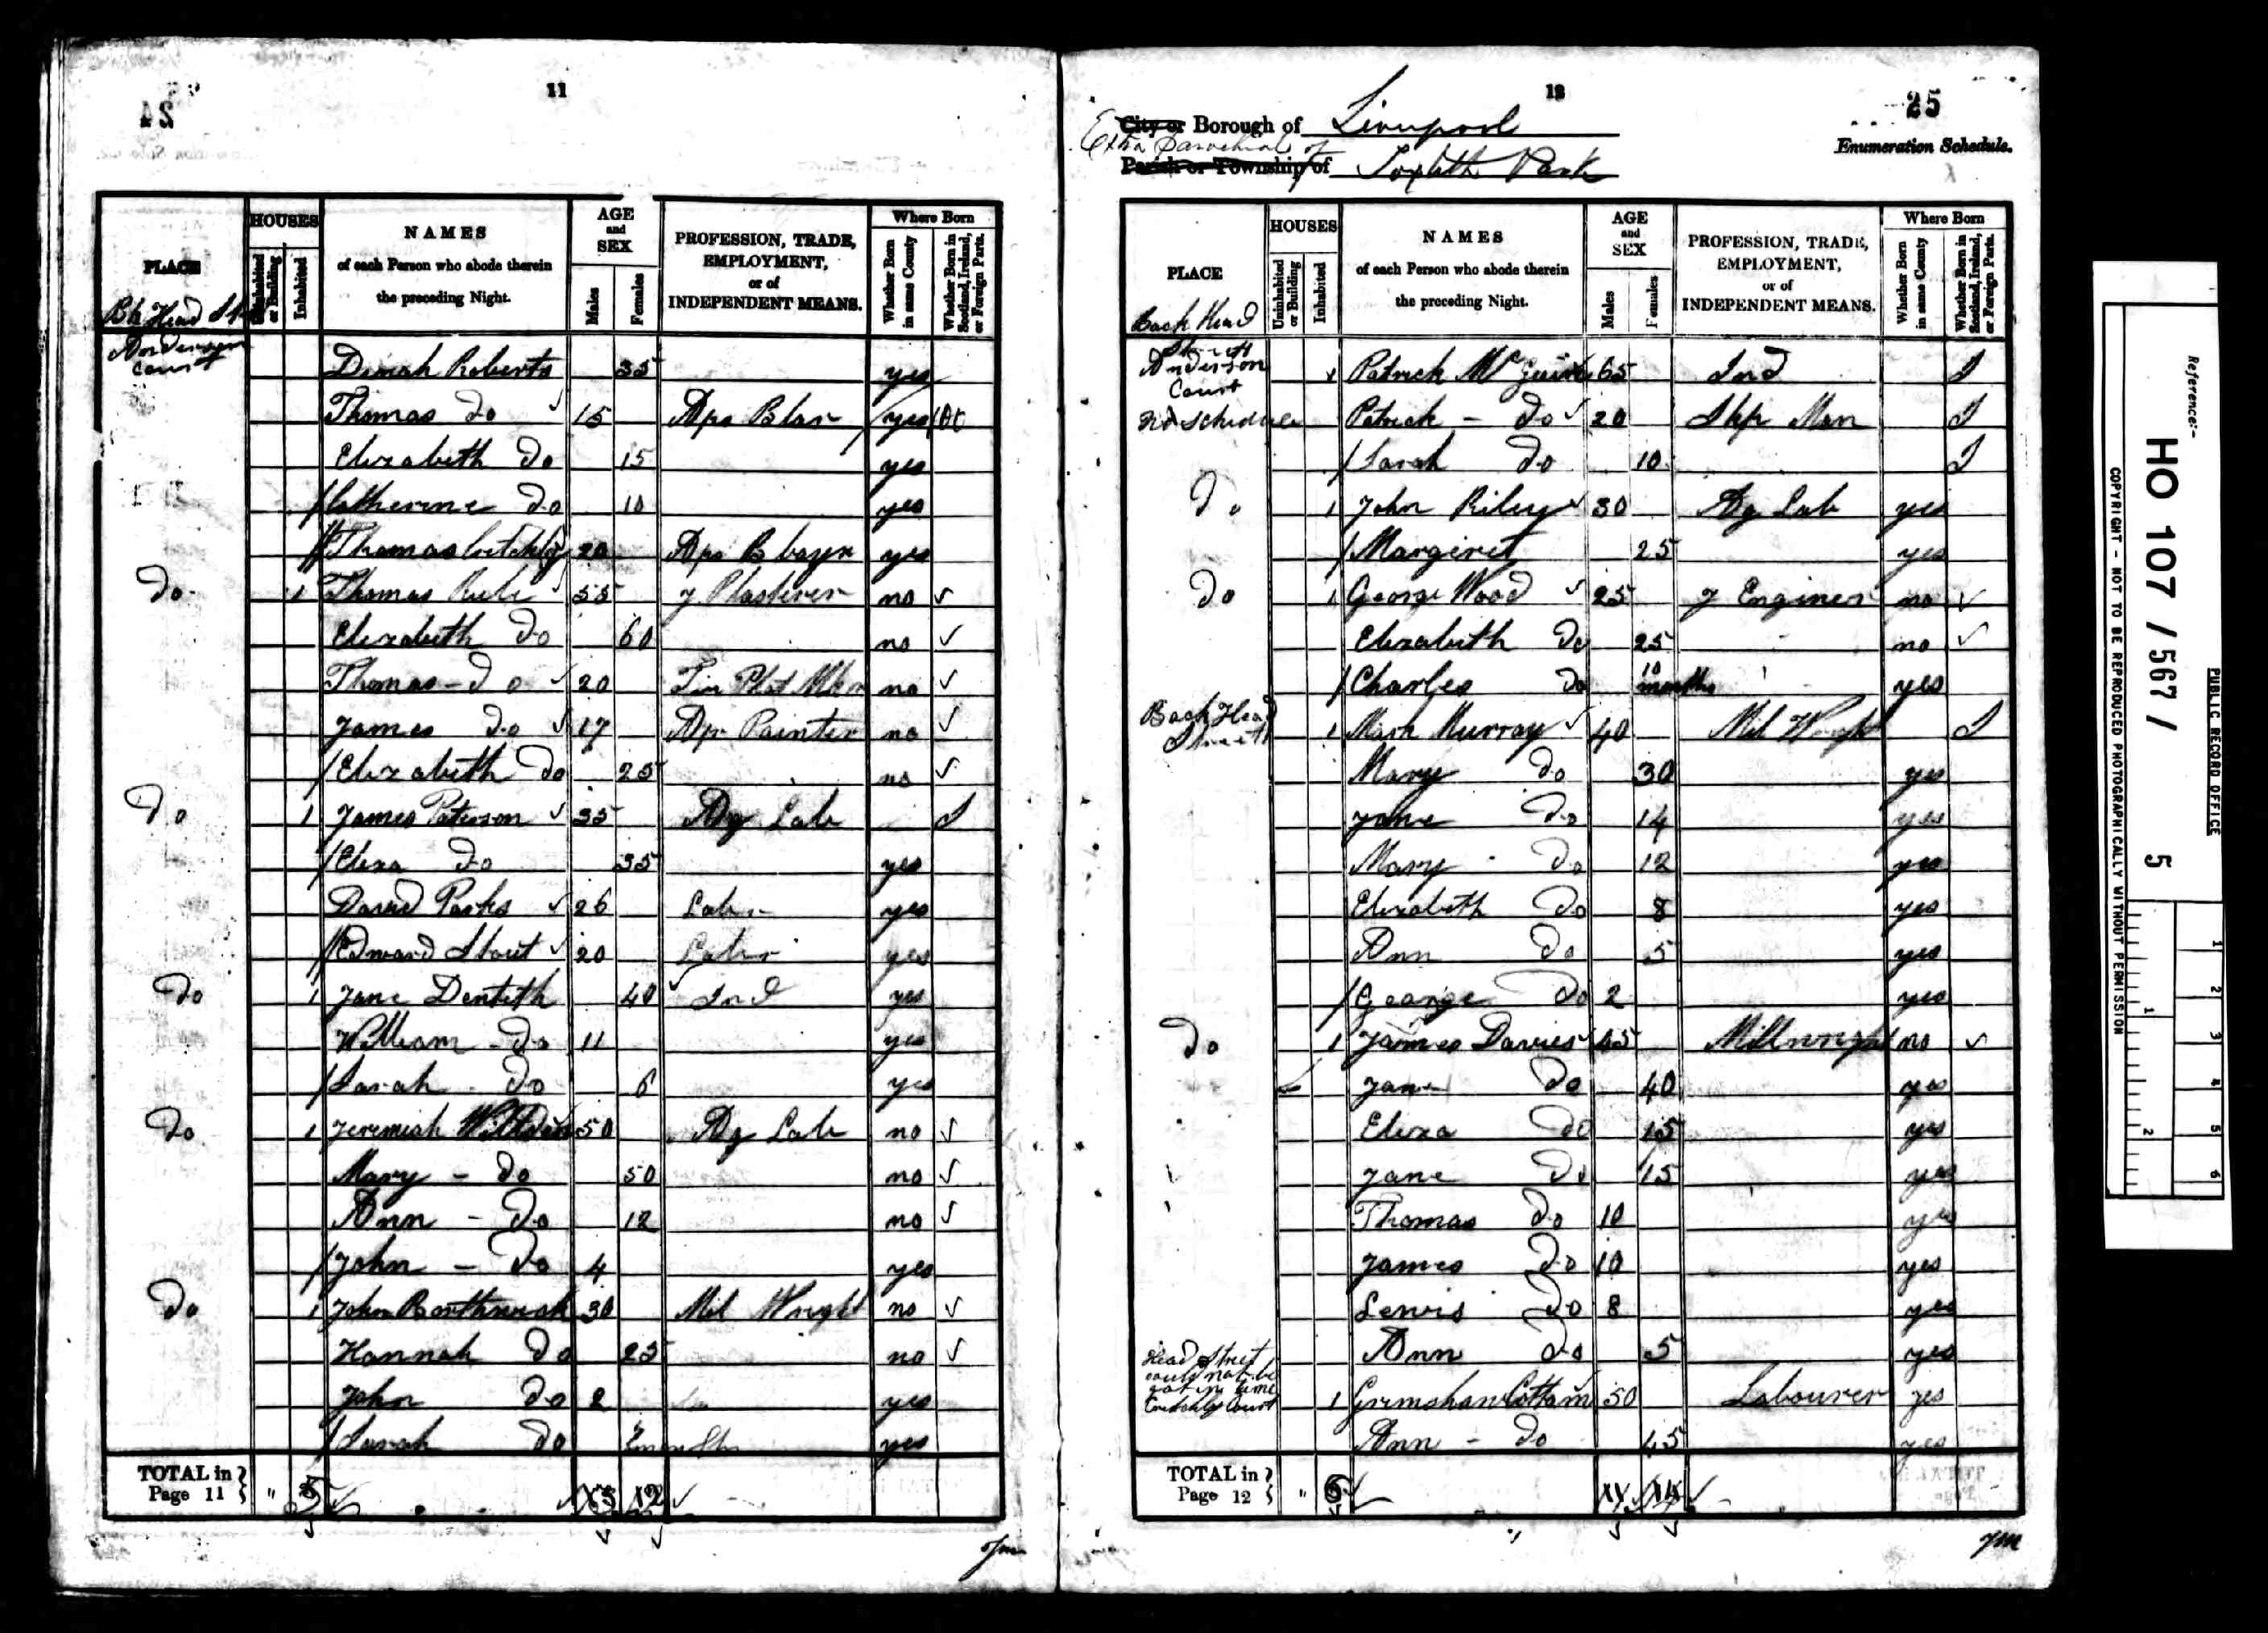 11
24
PLACE
HOUSES
Uninhabited or Building
Inhabited
NAMES
of each Person who abode therein
the preceding Night.
AGE
and
SEX
Males
Females
PROFESSION, TRADE,
EMPLOYMENT,
or of
INDEPENDENT MEANS.
Where Born
Whether Born in same County
Whether Born in Scotland, Ireland, or Foreign Parts.
Bk Head St
Anderson Court
Dinah Roberts 35 yes
Thomas Do 15 yes
Elizabeth Do 15 yes
Catherine Do 10 yes
Thomas 20 yes
Do 1 Thomas 55 J Plasterer no
Elizabeth Do 60 no
Thomas - Do 20 no
James Do 17 Ap Painter no
Elizabeth Do 25 no
Do 1 James Paterson 35 Ag Lab I
Eliza Do 35 yes
David Parks 26 Labr yes
Edward Stout 20 Labr yes
Do 1 Jane Dentith 40 Ind yes
William - Do 11 yes
Sarah - Do 6 yes
Do 1 Jeremiah 50 Ag Lab no
Mary - Do 50 no
Ann - Do 12 no
John - Do 4 yes
Do 1 John Borthwick 30 Mil Wright no
Hannah Do 25 no
John Do 2 yes
Sarah Do yes
TOTAL in
Page 11 " 5 13 12
12
25
City or Borough of Liverpool
Extra Parochial of
Parish or Township of Toxteth Park
Enumeration Schedule.
PLACE
HOUSES
Uninhabited or Building
Inhabited
NAMES
of each Person who abode therein
the preceding Night.
AGE
and
SEX
Males
Females
PROFESSION, TRADE,
EMPLOYMENT,
or of
INDEPENDENT MEANS.
Where Born
Whether Born in same County
Whether Born in Scotland, Ireland, or Foreign Parts.
Back Head
Street
Anderson
Court
Patrick McGuire 65 Ind I
No Schedule Patrick - Do 20 Shp Man I
Sarah Do 10 I
Do 1 John Riley 30 Ag Lab yes
Margiret 25 yes
Do 1 George Wood 25 J Enginer no
Elizabeth Do 25 no
Charles Do 10 months yes
Back Head
Street 1 Mark Murray 40 Mil Wright I
Mary Do 30 yes
Jane Do 14 yes
Mary Do 12 yes
Elizabeth Do 8 yes
Ann Do 5 yes
George Do 2 yes
Do 1 James Davies 45 Millwright no
Jane Do 40 yes
Eliza Do 15 yes
Jane Do 15 yes
Thomas Do 10 yes
James Do 10 yes
Lewis Do 8 yes
Ann Do 5 yes
Head Street
could not be
got in time
Court 1 Grimshaw Cottam 50 Labourer yes
Ann - Do 45 yes
TOTAL in
Page 12 " 6
Reference:-
HO 107 / 567 / 5
PUBLIC RECORD OFFICE
COPYRIGHT - NOT TO BE REPRODUCED PHOTOGRAPHICALLY WITHOUT PERMISSION
1
2
3
4
5
6
1
2